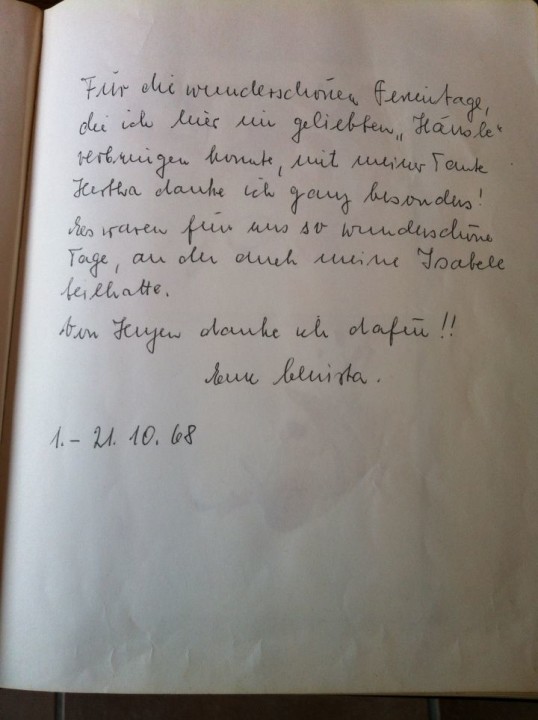 Für die wunderschönen Ferientage,
die ich hier im geliebten „Häusle"
verbringen konnte, mit meiner Tante
Hertha danke ich ganz besonders!
Es waren für uns so wunderschöne
Tage, an der auch meine Isabele
teilhatte.
Von Herzen danke ich dafür!!
Eure Christa.
1.- 21. 10. 68